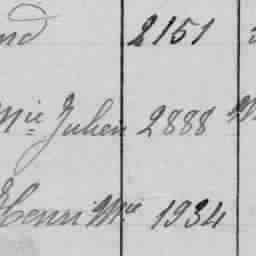 nd 2151
Mie Julien 2888 M
Henri Mie 1934